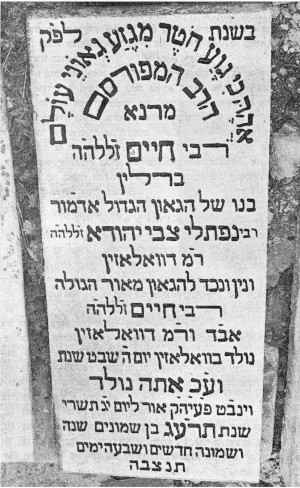 בשנת לפ״ק
אהה כי גוע חטר מגזע גאוני עולם
הרב המפורסם
מרנא
רבי חיים זללה״ה
ברלין
בנו של הגאון הגדול אדמו״ר
רבי נפתלי צבי יהודא זללה״ה
ר״מ דוואלאזין
ונין ונכד להגאון מאור הגולה
רבי חיים זללה״ה
אב״ד ור״מ דוואלאזין
נולד בוואלאזין יום ה׳ שבט שנת
וע״כ אתה נולד
וינב״ט פעיה״ק אור ליום י״ג תשרי
שנת תרע״ג בן שמונים שנה
ושמונה חדשים ושבעה ימים
תנצבה